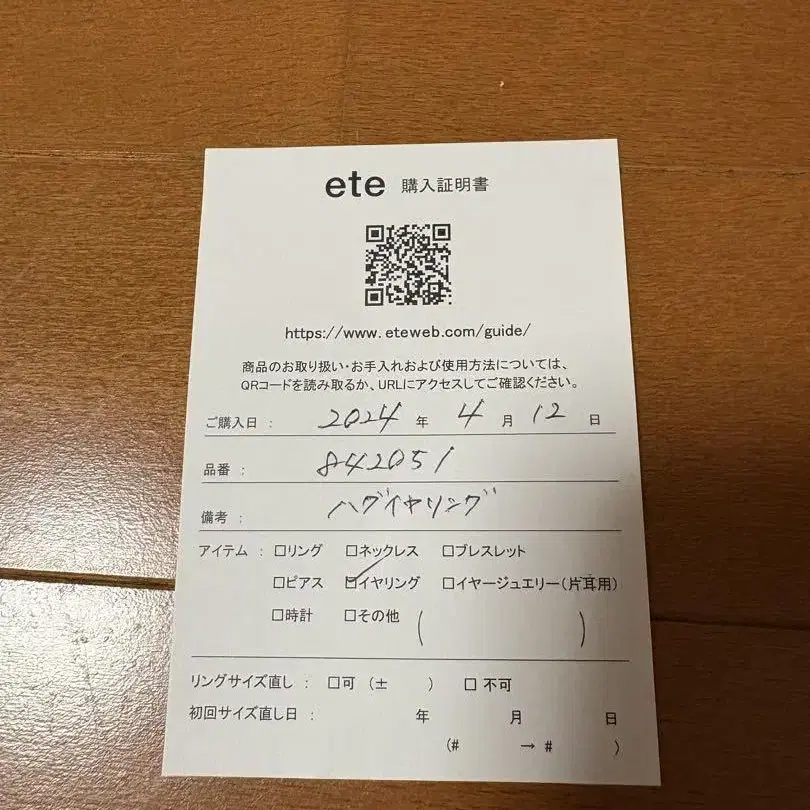 ete 購入証明書
https://www.eteweb.com/guide/
商品のお取り扱い・お手入れおよび使用方法については、
QRコードを読み取るか、URLにアクセスしてご確認ください。
ご購入日 : 2024 年 4 月 12 日
品番 : 842051
備考 : ハグイヤリング
アイテム : □リング □ネックレス □ブレスレット
□ピアス ☑イヤリング □イヤージュエリー(片耳用)
□時計 □その他 ( )
リングサイズ直し : □可 (± ) □ 不可
初回サイズ直し日 : 年 月 日
(# → # )